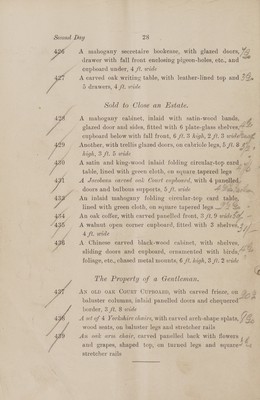 Second Day 23
426 A mahogany secretaire bookcase, with glazed doors,
drawer with fall front enclosing pigeon-holes, etc., and
cupboard under, 4 ft. wide
427 A carved oak writing table, with leather-lined top and
5 drawers, 4 ft. wide
Sold to Close an Estate.
428 A mahogany cabinet, inlaid with satin-wood bands,
glazed door and sides, fitted with 6 plate-glass shelves,
cupboard below with fall front, 6 ft. 3 high, 2 ft. 3 wide
429 Another, with trellis glazed doors, on cabriole legs, 5 ft. 8
high, 3 ft. 5 wide
430 A satin and king-wood inlaid folding circular-top card
table, lined with green cloth, on square tapered legs
431 A Jacobean carved oak Court cupboard, with 4 panelled
doors and bulbous supports, 5 ft. wide
433 An inlaid mahogany folding circular-top card table,
lined with green cloth, on square tapered legs
434 An oak coffer, with carved panelled front, 3 ft. 9 wide
435 A walnut open corner cupboard, fitted with 3 shelves,
4 ft. wide
436 A Chinese carved black-wood cabinet, with shelves,
sliding doors and cupboard, ornamented with birds,
foliage, etc., chased metal mounts, 6 ft. high, 3 ft. 2 wide
The Property of a Gentleman.
437 An old oak Court Cupboard, with carved frieze, on
baluster columns, inlaid panelled doors and chequered
border, 3 ft. 8 wide
438 A set of 4 Yorkshire chairs, with carved arch-shape splats,
wood seats, on baluster legs and stretcher rails
439 An oak arm chair, carved panelled back with flowers
and grapes, shaped top, on turned legs and square
stretcher rails